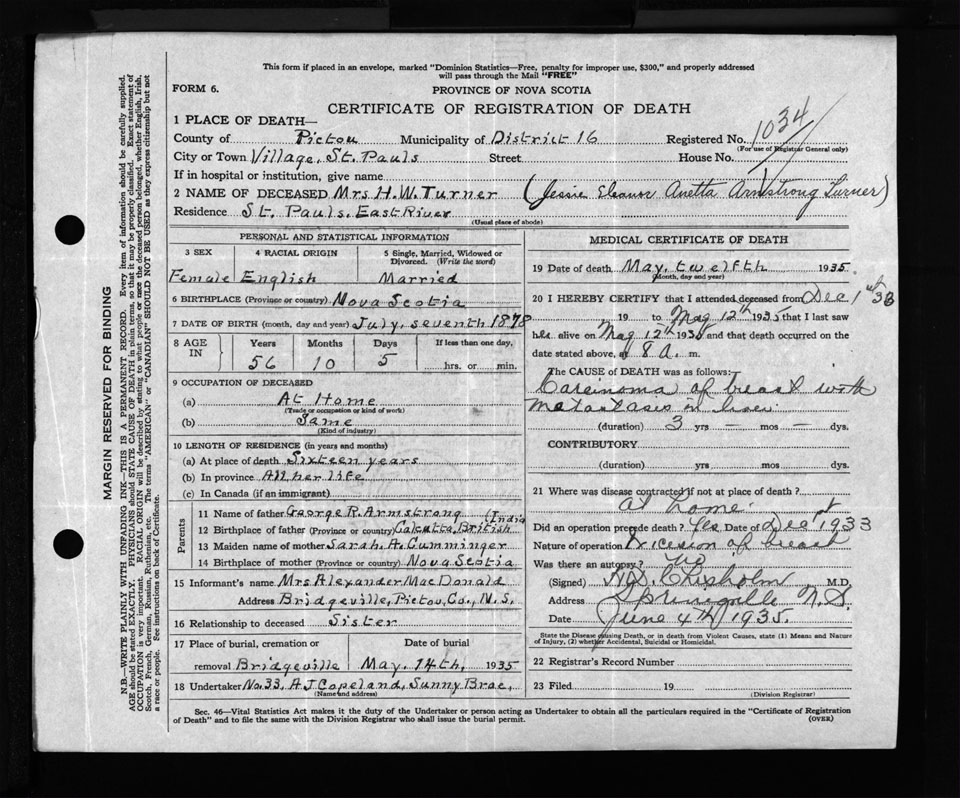 This form if placed in an envelope, marked "Dominion Statistics—Free, penalty for improper use, $300," and properly addressed
will pass through the Mail "FREE"
FORM 6.
PROVINCE OF NOVA SCOTIA
CERTIFICATE OF REGISTRATION OF DEATH
1 PLACE OF DEATH—
County of Pictou Municipality of District 16 Registered No. 1034
(For use of Registrar General only)
City or Town Village, St. Pauls Street House No.
If in hospital or institution, give name
2 NAME OF DECEASED Mrs H.W. Turner (Jessie Eleanor Anetta Armstrong Turner)
Residence St. Pauls. East River
(Usual place of abode)
PERSONAL AND STATISTICAL INFORMATION
3 SEX 4 RACIAL ORIGIN 5 Single, Married, Widowed or
Divorced. (Write the word)
Female English Married
6 BIRTHPLACE (Province or country) Nova Scotia
7 DATE OF BIRTH (month, day and year) July, seventh 1878
8 AGE IN Years Months Days If less than one day,
56 10 5 hrs. or min.
9 OCCUPATION OF DECEASED
(a) At Home
(Trade or occupation or kind of work)
(b) Same
(Kind of industry)
10 LENGTH OF RESIDENCE (in years and months)
(a) At place of death Sixteen years
(b) In province All her life
(c) In Canada (if an immigrant)
Parents
11 Name of father George R. Armstrong
12 Birthplace of father (Province or country) Calcutta, British (India
13 Maiden name of mother Sarah. A. Cumminger
14 Birthplace of mother (Province or country) Nova Scotia
15 Informant's name Mrs Alexander MacDonald
Address Bridgeville, Pictou, Co., N.S.
16 Relationship to deceased Sister
17 Place of burial, cremation or Date of burial
removal Bridgeville May. 14th, 1935
18 Undertaker No. 33. A J Copeland, Sunny Brae,
(Name and address)
MEDICAL CERTIFICATE OF DEATH
19 Date of death May, twelfth 1935.
(Month, day and year)
20 I HEREBY CERTIFY that I attended deceased from Dec 1st 33
19 to May 12th 1935 that I last saw
her alive on May 12th 1935 and that death occurred on the
date stated above, at 8 A. m.
The CAUSE of DEATH was as follows:
Carcinoma of breast with
metastases in liver
(duration) 3 yrs — mos — dys.
CONTRIBUTORY
(duration) yrs. mos. dys.
21 Where was disease contracted if not at place of death?
at home.
Did an operation precede death? Yes Date of Dec 1st 1933
Nature of operation Excision of breast
Was there an autopsy? no
(Signed) Chisholm M.D.
Address Springville N.S.
Date June 4th 1935.
State the Disease causing Death, or in death from Violent Causes, state (1) Means and Nature
of Injury, (2) whether Accidental, Suicidal or Homicidal.
22 Registrar's Record Number
23 Filed 19
(Division Registrar)
Sec. 46—Vital Statistics Act makes it the duty of the Undertaker or person acting as Undertaker to obtain all the particulars required in the "Certificate of Registration
of Death" and to file the same with the Division Registrar who shall issue the burial permit.
(OVER)
MARGIN RESERVED FOR BINDING
N.B.—WRITE PLAINLY WITH UNFADING INK—THIS IS A PERMANENT RECORD. Every item of information should be carefully supplied.
AGE should be stated EXACTLY. PHYSICIANS should STATE CAUSE OF DEATH in plain terms, so that it may be properly classified. Exact statement of
OCCUPATION is very important. RACIAL ORIGIN will be described by stating to what people or race the deceased person belonged, whether English, Irish,
Scotch, French, German, Russian, Ruthenian, etc. The terms "AMERICAN" or "CANADIAN" SHOULD NOT BE USED as they express citizenship but not
a race or people. See instructions on back of Certificate.